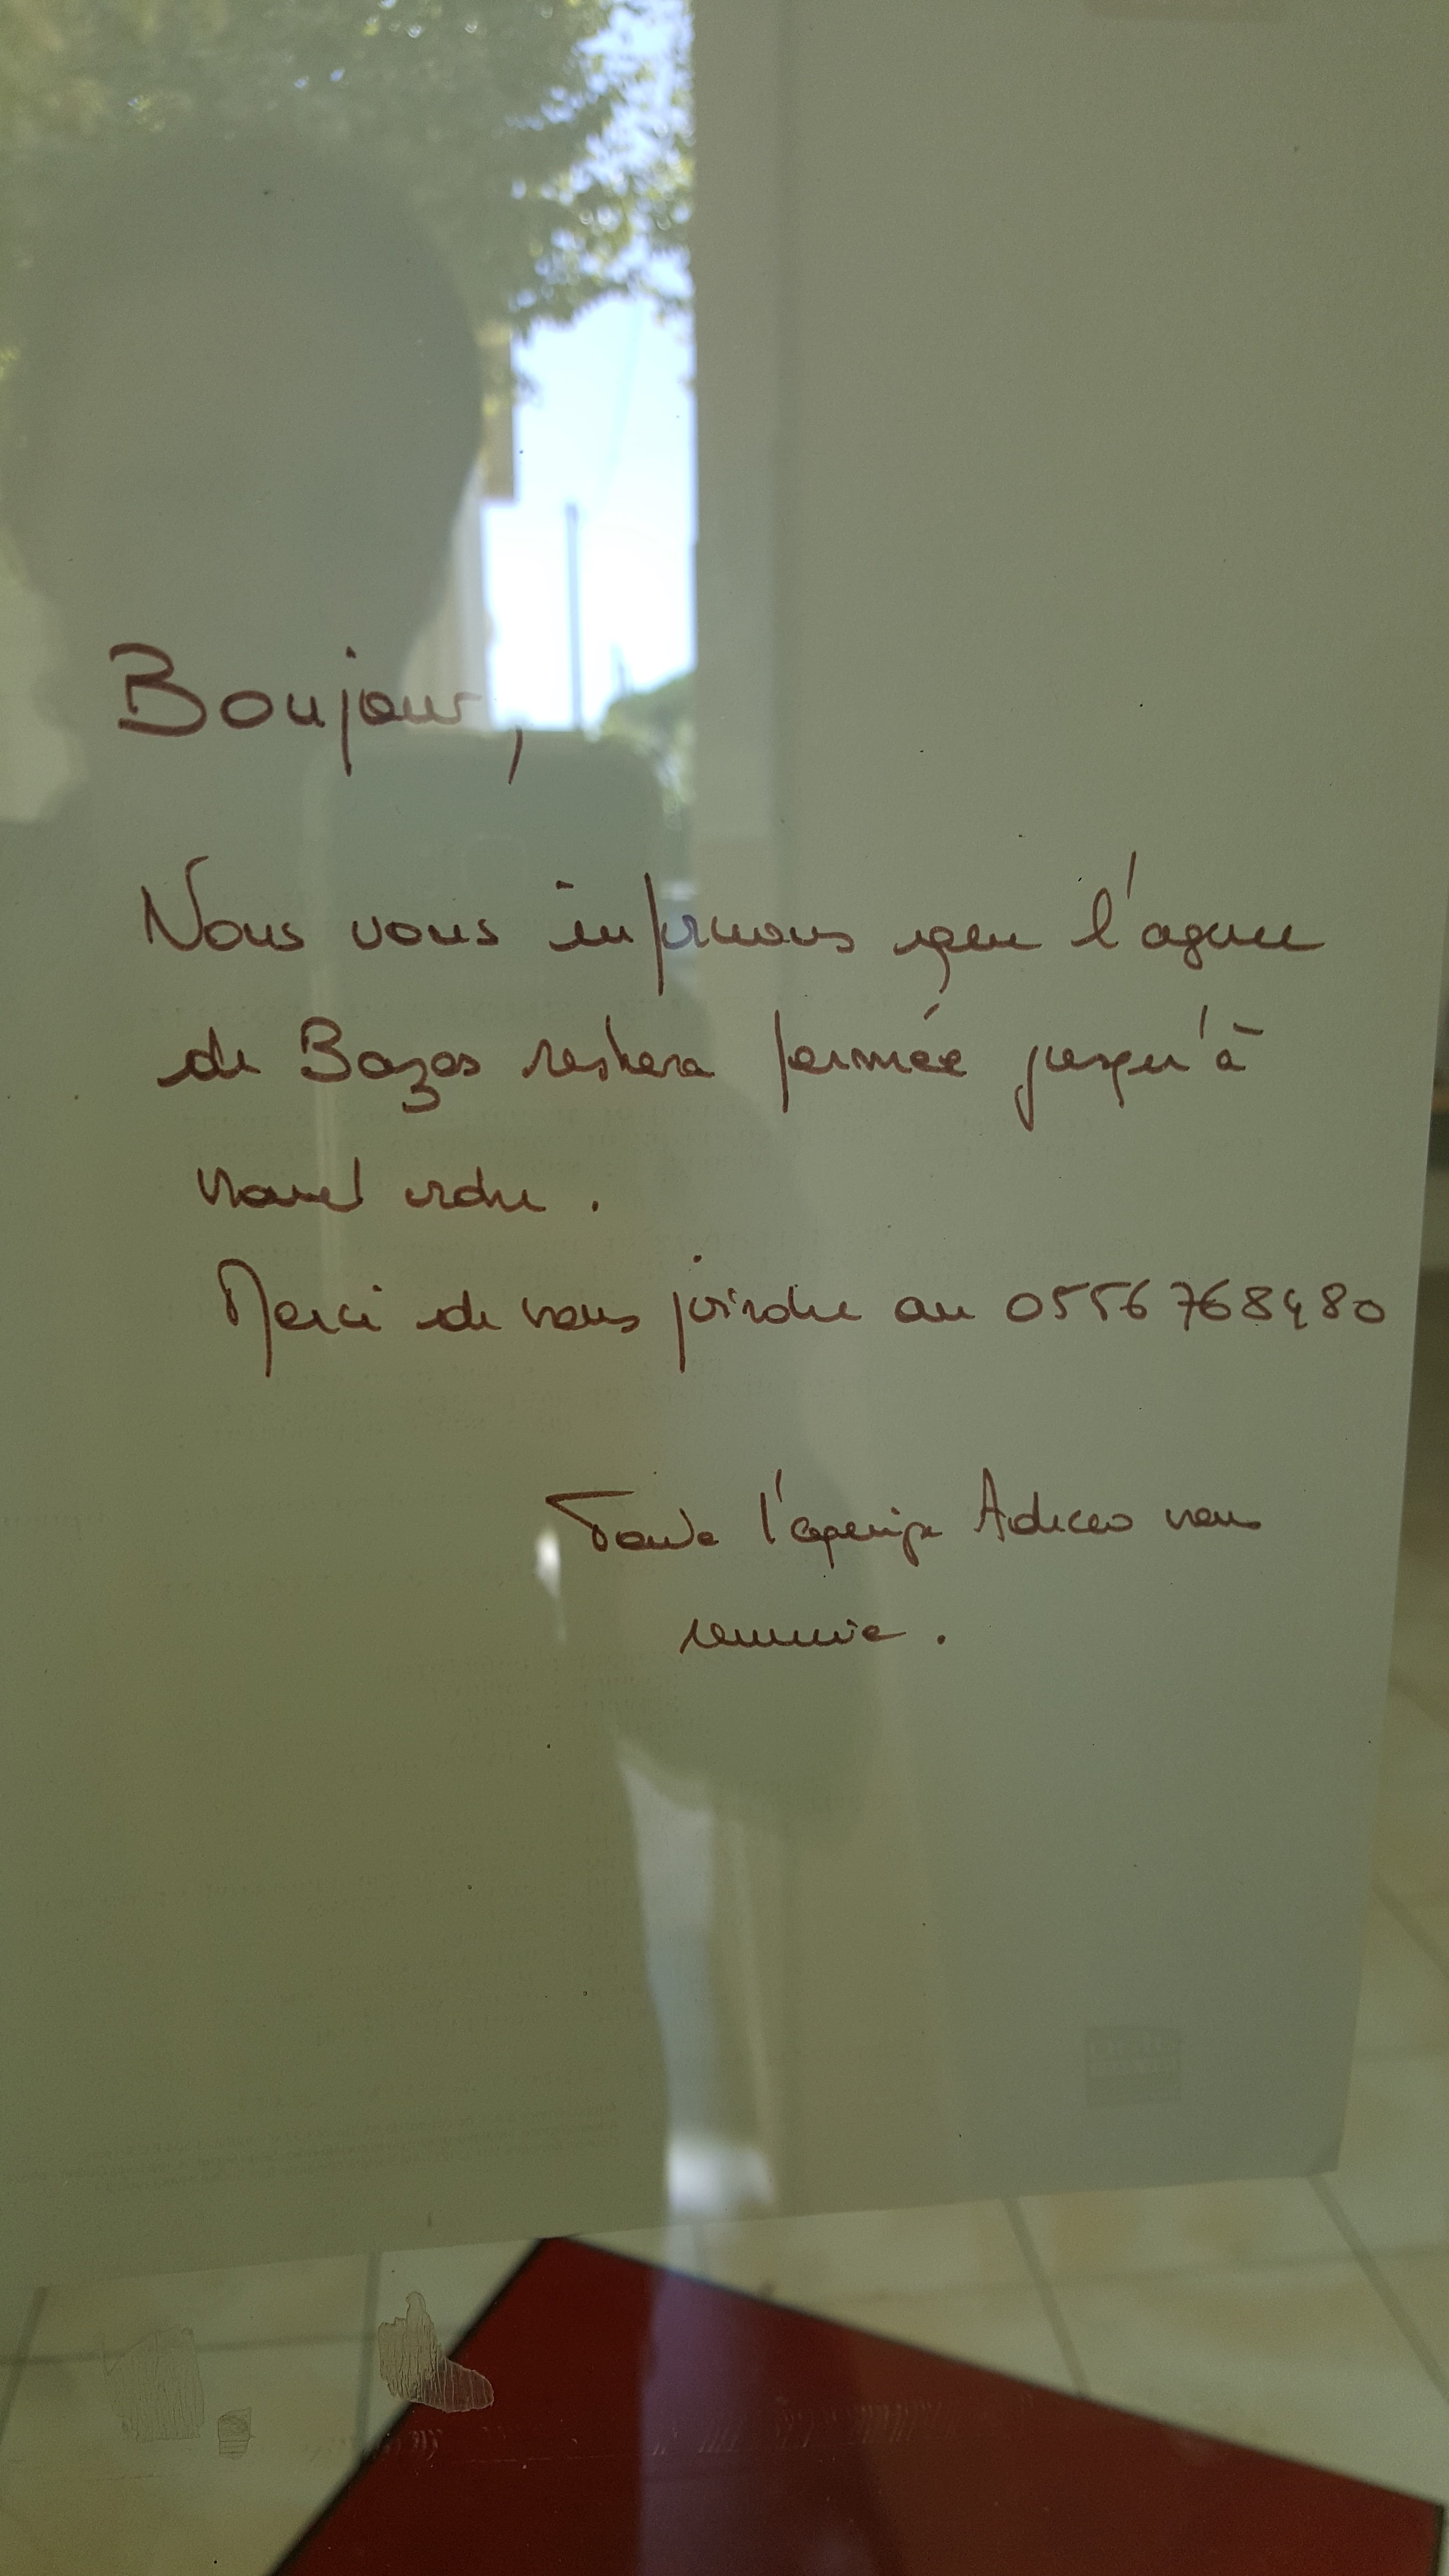 Bonjour,
Nous vous informons que l'agence
de Bazas restera fermée jusqu'à
nouvel ordre.
Merci de nous joindre au 0556768480
Toute l'équipe Adecco vous
remercie.